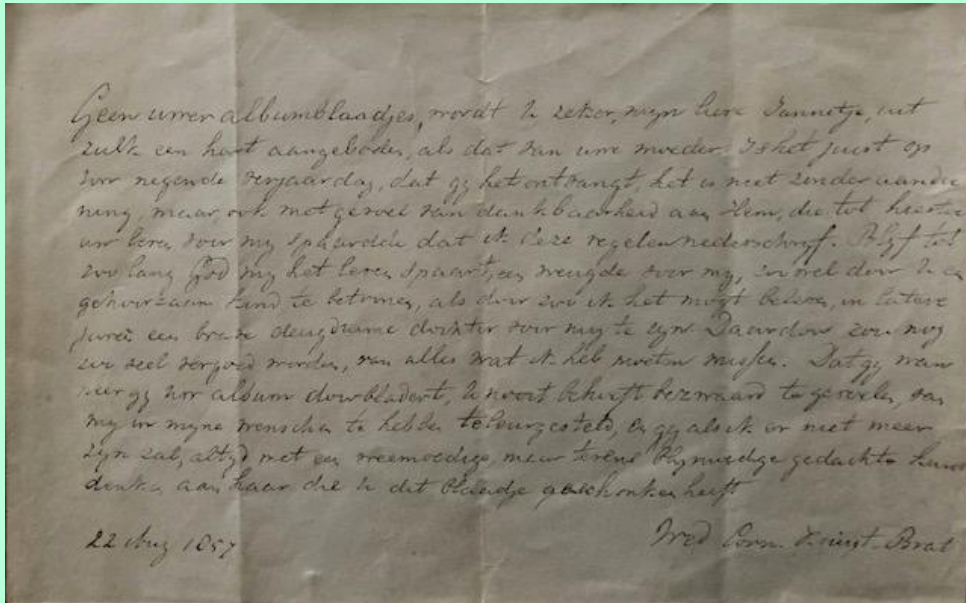 Geen uwer albumblaadjes, wordt U zeker, mijn lieve Jannetje, uit
zulk een hart aangeboden, als dat van uwe moeder. Is het juist op
uw negende verjaardag, dat gy het ontvangt, het is niet zonder aandoe
ning, maar ook met gevoel van dankbaarheid aan Hem, die tot hiertoe
uw leven voor my spaarde dat ik deze regelen nederschryf. Blyf tot
zoo lang God my het leven spaart, een vreugde voor my, zoowel door U een
gehoorzaam kind te betonen, als door zoo ik het mogt beleven, in latere
jaren een brave deugdzame dochter voor my te zyn. Daardoor zou nog
zoo veel vergoed worden, van alles wat ik heb moeten missen. Dat gy wan
neer gy uw album doorbladert, U nooit behoeft bezwaard te gevoelen, van
my in myne wenschen te hebben teleurgesteld, en gy als ik er niet meer
zyn zal, altyd met een weemoedige, maar tevens blymoedige gedachte kunt
denken aan haar die U dit blaadje geschonken heeft
22 Aug 1857
Wed Corn.